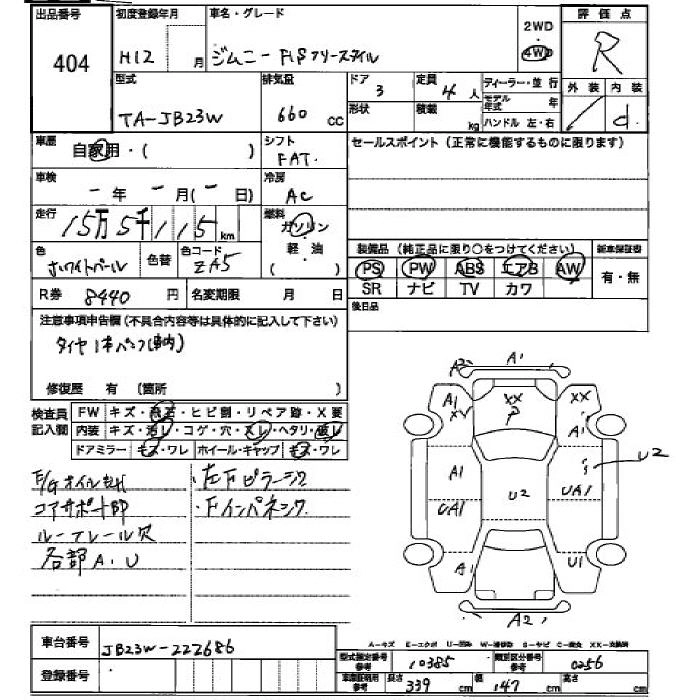 出品番号 初度登録年月 車名・グレード 2WD 評価点
404 H12 月 ジムニー FISフリースタイル 4WD R
型式 排気量 ドア 3 定員 4人 ディーラー・並行 外装 内装
TA-JB23W 660 cc 形状 積載 kg モデル年式 年 / d
ハンドル 左・右
車歴 自家用・( ) シフト セールスポイント(正常に機能するものに限ります)
FAT.
車検 - 年 - 月(- 日) 冷房
AC
走行 15万5千115 km 燃料 ガソリン
軽・油
( )
色 ホワイトパール 色替 色コード ZA5
装備品(純正品に限り○をつけてください) 新車保証書
PS PW ABS エアB AW 有・無
SR ナビ TV カワ
R券 8440 円 名変期限 月 日 後日品
注意事項申告欄(不具合内容等は具体的に記入して下さい)
タイヤ1本パンク(車内)
修復歴 有 (箇所 )
検査員記入欄 FW キズ・飛石・ヒビ割・リペア跡・X要
内装 キズ・汚レ・コゲ・穴・スレ・ヘタリ・破レ
ドアミラー キズ・ワレ ホイール・キャップ キズ・ワレ
E/Gオイルもれ ・左下ピラーシワ
コアサポート即 ・Fインパネシワ
ルーフレール欠
各部A.U
A2 A1
A1 XX XX
XV P A1
A1 U2 S U2
UA1 UA1
A1 U1
A2
A-キズ E-エクボ U-凹み W-補修跡 S-サビ C-腐食 XX-交換済
車台番号 JB23W-222686
登録番号
型式指定番号 参考 10385 類別区分番号 参考 0256
車庫証明用 参考 長さ 339 cm 幅 147 cm 高さ cm